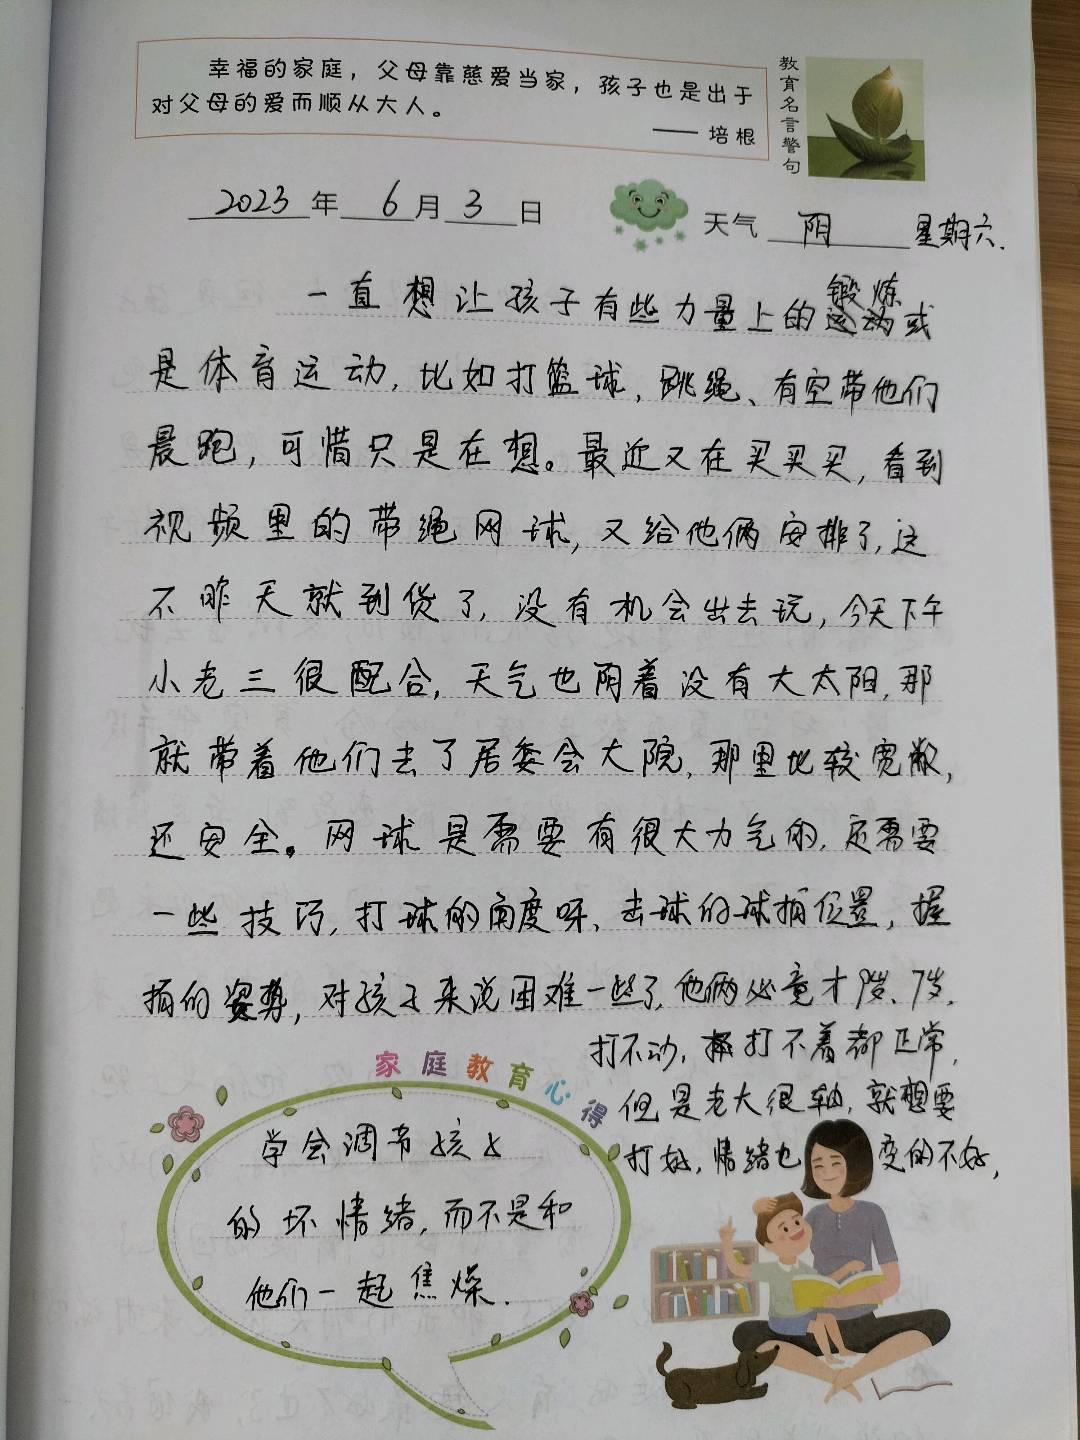 幸福的家庭，父母靠慈爱当家，孩子也是出于
对父母的爱而顺从大人。
—— 培根
教育名言警句
2023年6月3日
天气 阴 星期六.
锻炼
一直想让孩子有些力量上的运动或
是体育运动，比如打篮球，跳绳、有空带他们
晨跑，可惜只是在想。最近又在买买买，看到
视频里的带绳网球，又给他俩安排了，这
不昨天就到货了，没有机会出去玩，今天下午
小老三很配合，天气也阴着没有大太阳，那
就带着他们去了居委会大院，那里比较宽敞，
还安全。网球是需要有很大力气的，还需要
一些技巧，打球的角度呀、击球的球拍位置，握
拍的姿势，对孩子来说困难一些了，他俩必竟才9岁、7岁，
打不动，打不着都正常，
但是老大很轴，就想要
打好，情绪也变的不好，
家庭教育心得
学会调节孩子
的坏情绪，而不是和
他们一起焦燥.